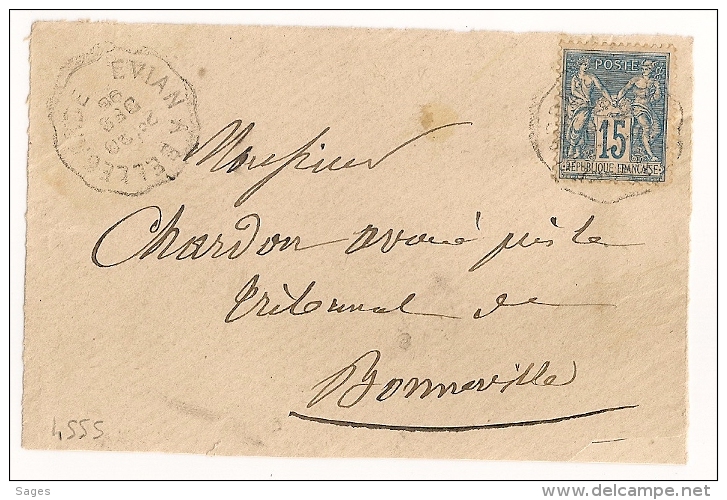 EVIAN A BELLEGARDE
POSTE
15
RÉPUBLIQUE FRANÇAISE
Monsieur
Chardon avoué près le
tribunal de
Bonneville
1,555
Sages
delcampe.net